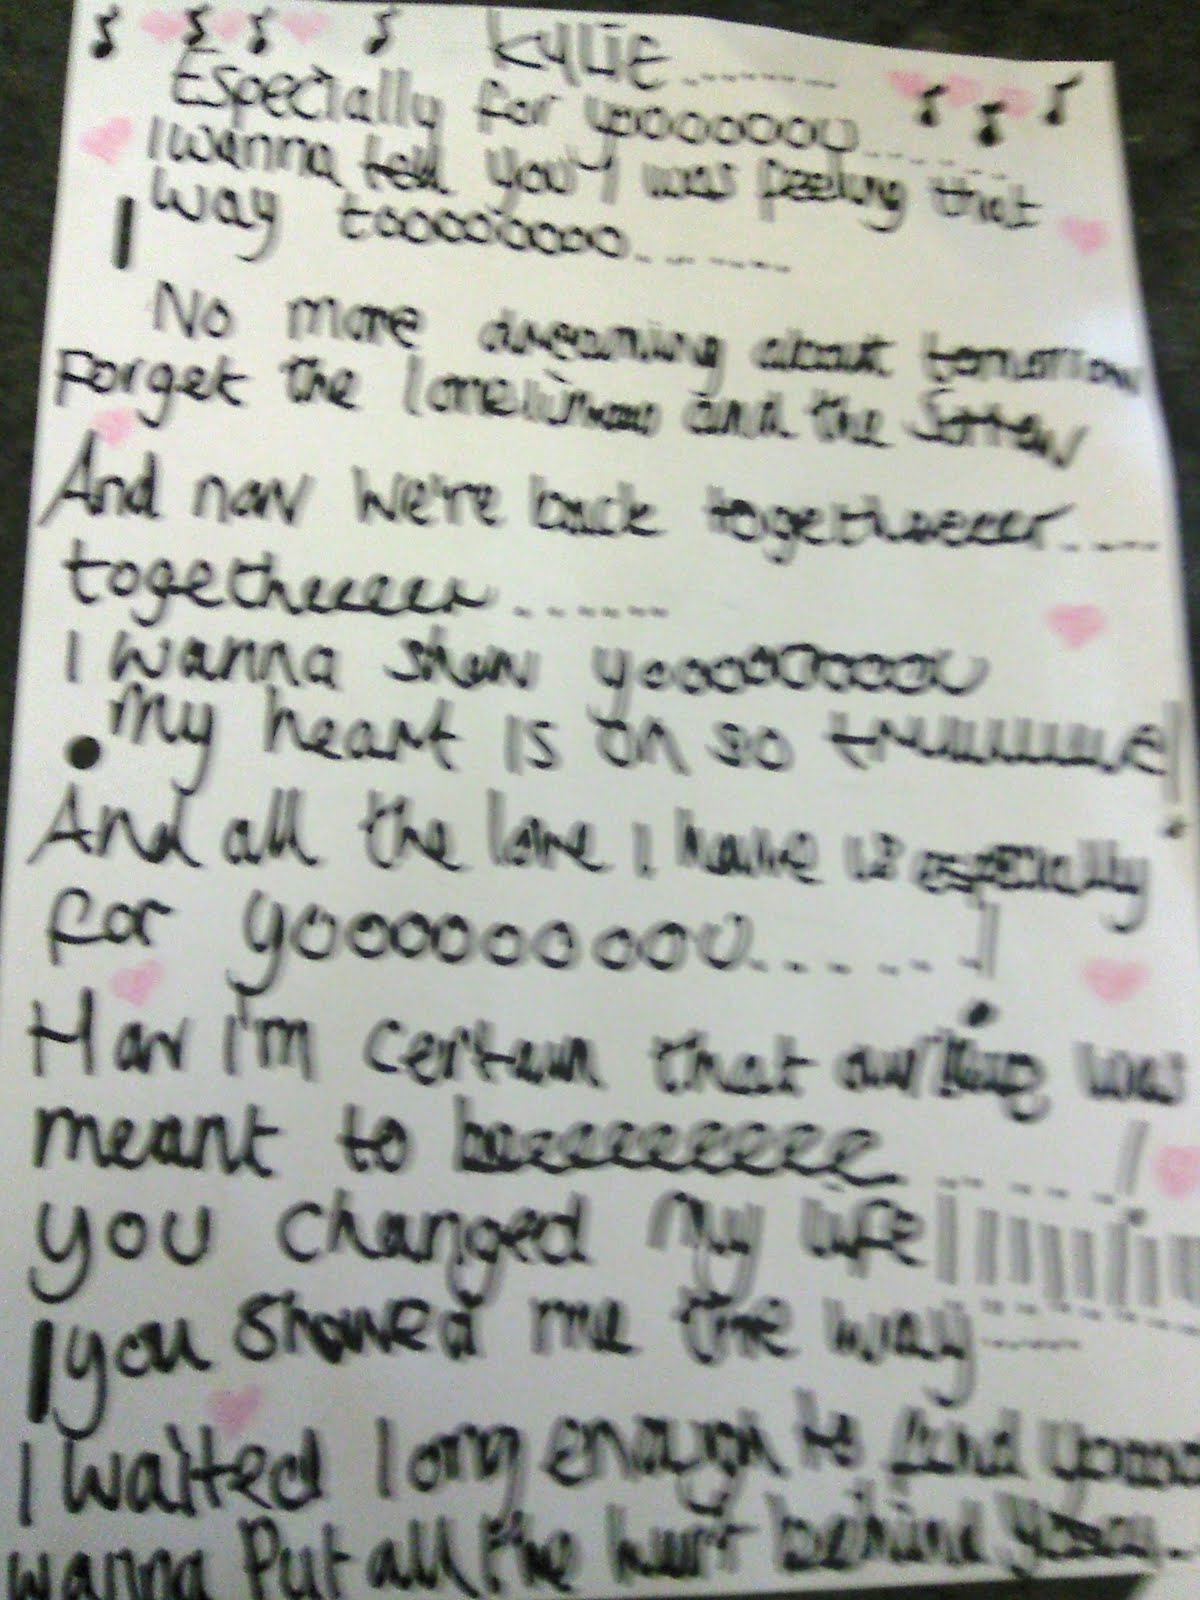 Kylie.......
Especially for yooooooou......
I wanna tell you I was feeling that
way tooooooooo......
No more dreaming about tomorrow
Forget the loneliness and the sorrow
And now we're back togetheeeer.....
togetheeeeer......
I wanna show yoooooooooou
My heart is oh so truuuuuue!
And all the love I have is especially
for yooooooooou......!
I'm certain that was
meant to beeeeeeeeee.....!
you changed my life
you showed me the way......
I waited long enough to find yooooo
wanna Put all the hurt behind